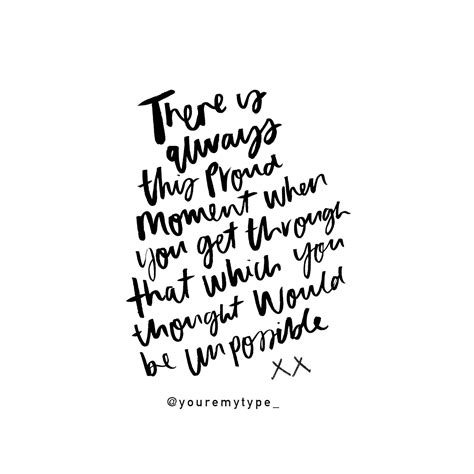 There is
always
this Proud
Moment when
you get through
that which you
thought Would
be impossible
xx
@youremytype_